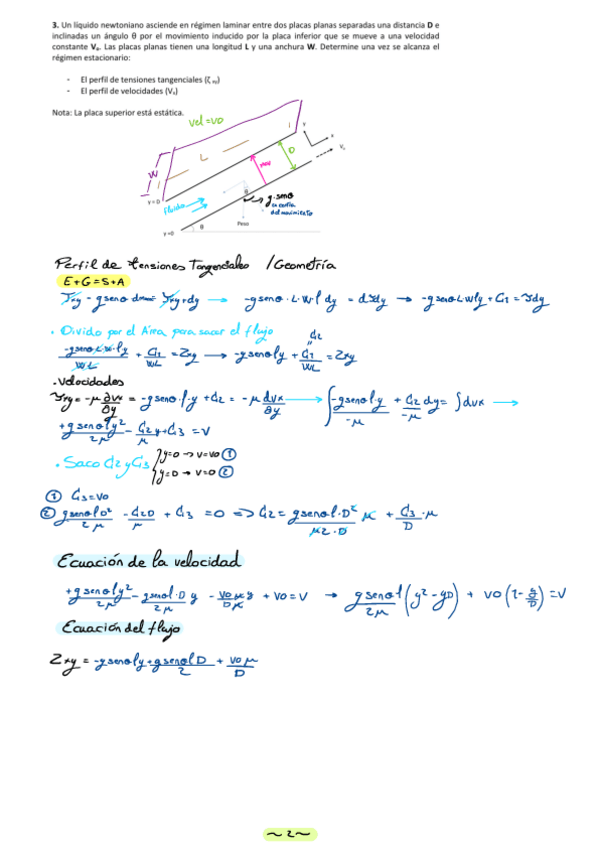 3. Un líquido newtoniano asciende en régimen laminar entre dos placas planas separadas una distancia D e
inclinadas un ángulo θ por el movimiento inducido por la placa inferior que se mueve a una velocidad
constante V₀. Las placas planas tienen una longitud L y una anchura W. Determine una vez se alcanza el
régimen estacionario:
- El perfil de tensiones tangenciales (ζxy)
- El perfil de velocidades (Vx)
Nota: La placa superior está estática.
vel=vo
L
W
D
y
x
V₀
v=0
Fluido
g·senθ
del movimiento
Peso
θ
v=0
Perfil de tensiones Tangenciales / Geometría
E+G=S+A
→ -gsenθ·L·W·ρ dy = dτdy → -gsenθLWρy + C1 = τdy
· Divido por el Área para sacar el flujo
C2
-gsenθLWρy/WL + C1/WL = τxy → -gsenθρy + C1/WL = τxy
· Velocidades
τxy = -μ ∂vx/∂y = -gsenθ·ρ·y + C2 = -μ dvx/∂y → ∫ -gsenθρ·y/-μ + C2/-μ dy = ∫dvx →
+gsenθρy²/2μ - C2y/μ + C3 = V
· Saco C2 y C3 { y=0 → v=vo ①
y=D → v=0 ②
① C3=vo
② gsenθρD²/2μ - C2D/μ + C3 = 0 => C2 = gsenθρ·D²μ/μ2·D + C3·μ/D
Ecuación de la velocidad
+gsenθρy²/2μ - gsenθρ·D y/2μ - voμy/Dμ + vo = V → gsenθρ/2μ (y² - yD) + vo(1 - y/D) = V
Ecuación del flujo
τxy = -gsenθρy + gsenθρD/2 + voμ/D
~2~